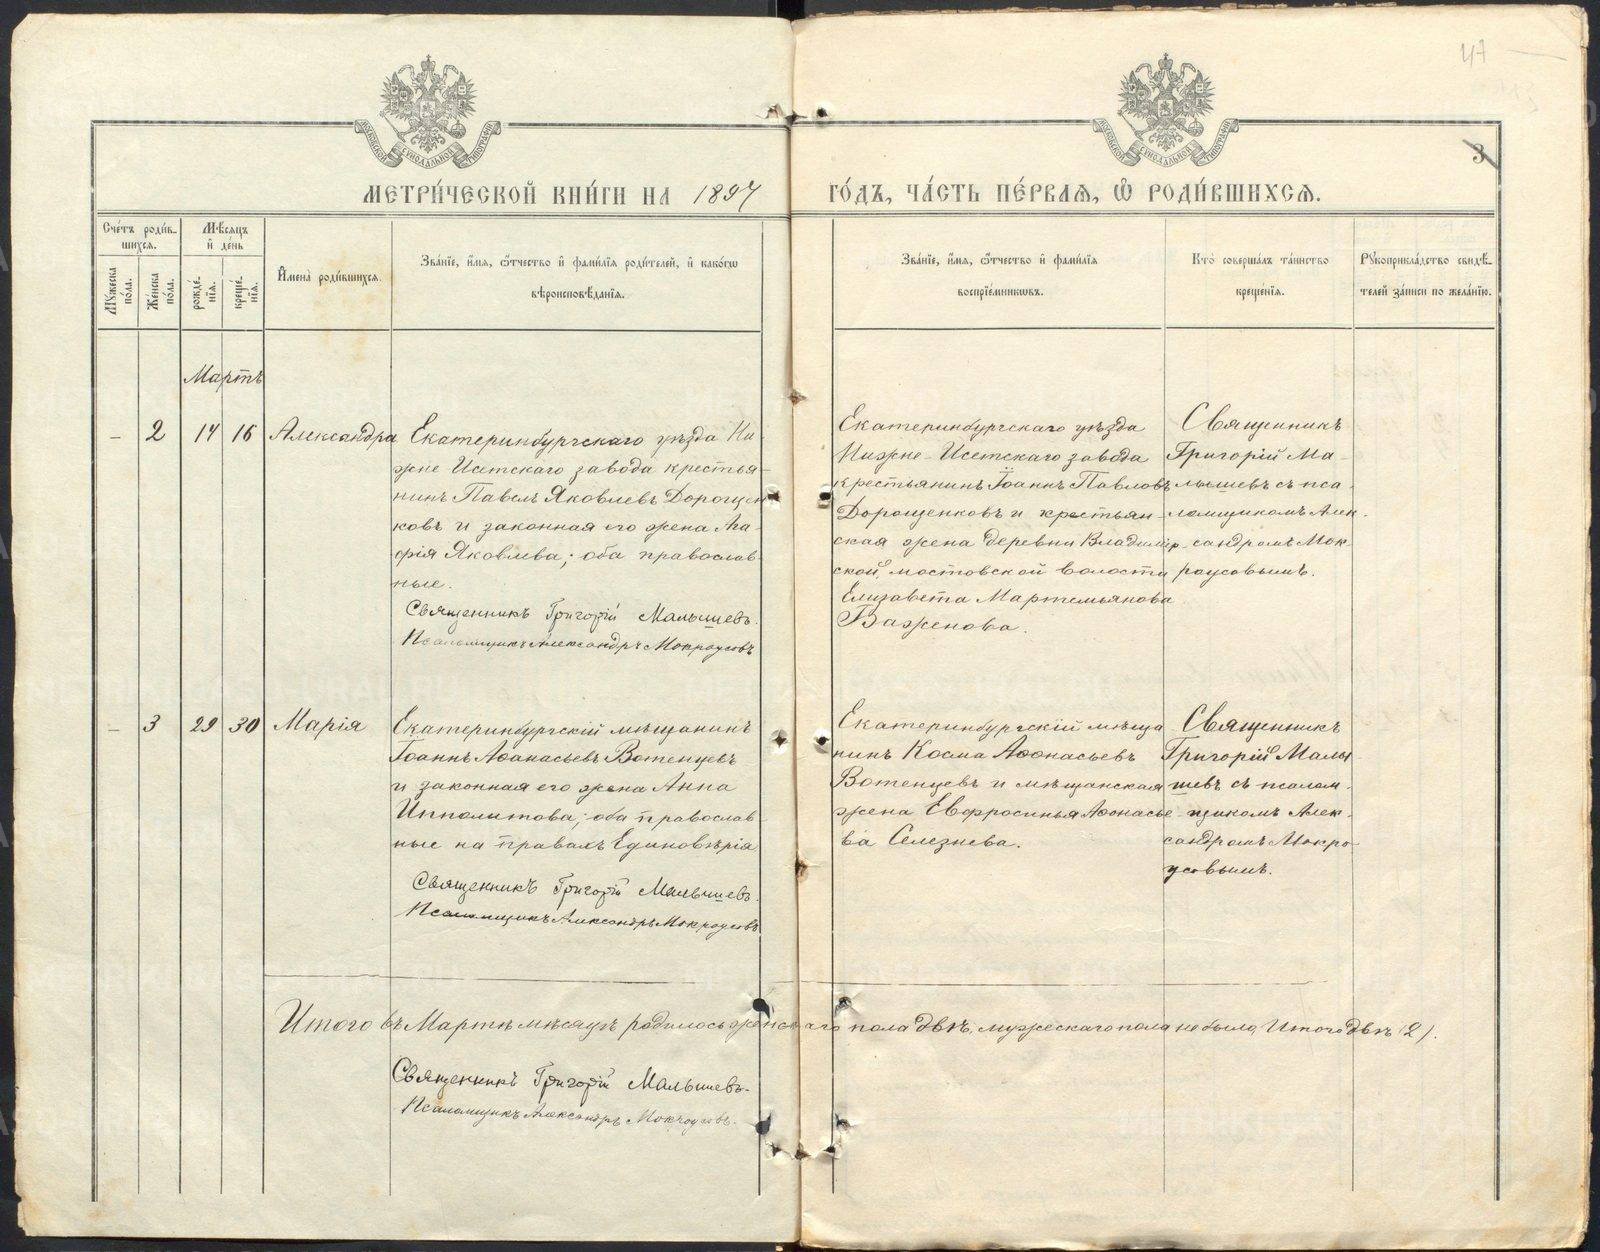 47
3
МОСКОВСКОЙ СѴНОДАЛЬНОЙ ТИПОГРАФІИ
МОСКОВСКОЙ СѴНОДАЛЬНОЙ ТИПОГРАФІИ
МЕТРИ́ЧЕСКОЙ КНИ́ГИ НА 1897
ГО́ДЪ, ЧА́СТЬ ПЕ́РВАѦ, Ѽ РОДИ́ВШИХСѦ.
Сче́тъ роди́в-
шихсѧ.
Мужеска по́ла.
Же́нска по́ла.
Мѣ́сѧцъ
и҆ де́нь
рожде́-
нїѧ.
креще́-
нїѧ.
И҆мена̀ роди́вшихсѧ.
Зва́нїе, и҆́мѧ, ѻ҆́тчество и҆ фами́лїѧ роди́телей, и҆ како́гѡ
вѣроисповѣ́данїѧ.
Зва́нїе, и҆́мѧ, ѻ҆́тчество и҆ фами́лїѧ
воспрїе́мникѡвъ.
Кто̀ соверша́лъ та́инство
креще́нїѧ.
Рꙋкоприкла́дство свидѣ́-
телей за́писи по жела́нїю.
Мартъ
– 2 14 16 Александра
Екатеринбургскаго уѣзда Ни-
жне Исетскаго завода крестья-
нинъ Павелъ Яковлевъ Дорощен
ковъ и законная его жена Ага-
фія Яковлева; оба православ-
ные.
Священникъ Григорій Малышевъ.
Псаломщикъ Александръ Мокроусовъ
Екатеринбургскаго уѣзда
Нижне-Исетскаго завода
крестьянинъ Іоаннъ Павловъ
Дорощенковъ и крестьян-
ская жена деревни Владимір-
ской, мостовской волости
Елизавета Мартемьянова
Баженова.
Священникъ
Григорій Ма-
лышевъ съ пса-
ломщикомъ Алек-
сандромъ Мок-
роусовымъ.
– 3 29 30 Марія
Екатеринбургскій мѣщанинъ
Іоаннъ Аѳанасьевъ Вотенцевъ
и законная его жена Анна
Ипполитова; оба православ-
ные на правахъ Единовѣрія
Священникъ Григорій Малышевъ.
Псаломщикъ Александръ Мокроусовъ
Екатеринбургскій мѣща
нинъ Косма Аѳонасьевъ
Вотенцевъ и мѣщанская
жена Евфросинья Аѳонасье
ва Селезнева.
Священникъ
Григорій Малы
шевъ съ псалом-
щикомъ Алек-
сандромъ Мокро-
усовымъ.
Итого въ Мартѣ мѣсяцѣ родилось женскаго пола двѣ, мужескаго пола не было, Итого двѣ (2).
Священникъ Григорій Малышевъ.
Псаломщикъ Александръ Мокроусовъ.